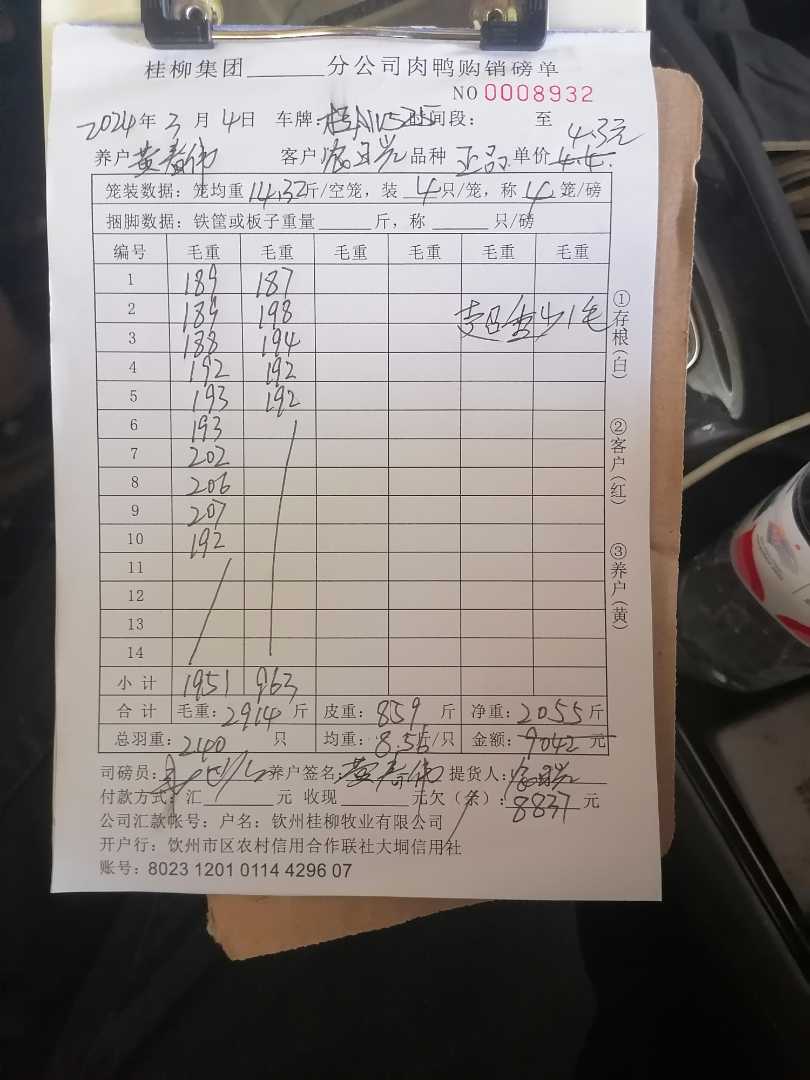 桂柳集团______分公司肉鸭购销磅单
NO 0008932
2024年3月4日 车牌:桂N 时间段: 至
4.3元
养户 黄春伟 客户 品种 正品 单价 4.4.
笼装数据:笼均重 14.32 斤/空笼,装 4 只/笼,称 4 笼/磅
捆脚数据:铁筐或板子重量______斤,称______只/磅
编号 毛重 毛重 毛重 毛重 毛重 毛重
1 189 187
2 189 198 少1毛
3 188 194
4 192 192
5 193 192
6 193
7 202
8 206
9 207
10 192
11
12
13
14
小计 1951 963
合计 毛重:2914 斤 皮重:859 斤 净重:2055 斤
总羽重:240 只 均重:8.56 斤/只 金额:9042 元
司磅员: 养户签名:黄春伟 提货人:
付款方式:汇______元 收现______元欠(条):8837 元
公司汇款帐号:户名:钦州桂柳牧业有限公司
开户行:钦州市区农村信用合作联社大垌信用社
账号:8023 1201 0114 4296 07
①存根(白)
②客户(红)
③养户(黄)